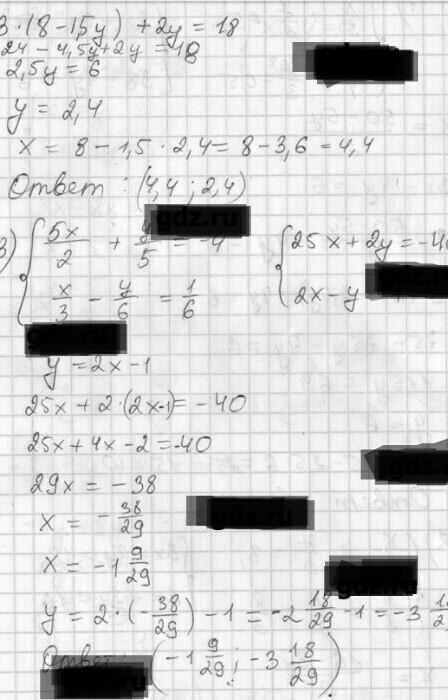 3·(8 - 1,5y) + 2y = 18
24 - 4,5y + 2y = 18
2,5y = 6
y = 2,4
x = 8 - 1,5 · 2,4 = 8 - 3,6 = 4,4
Ответ : (4,4 ; 2,4)
3) { 5x/2 + y/5 = -4 { 25x + 2y = -40
x/3 - y/6 = 1/6 2x - y
y = 2x - 1
25x + 2·(2x-1) = -40
25x + 4x - 2 = -40
29x = -38
x = - 38/29
x = -1 9/29
y = 2·(- 38/29) - 1 = -2 18/29 - 1 = -3 18/2
Ответ : (-1 9/29 ; -3 18/29)